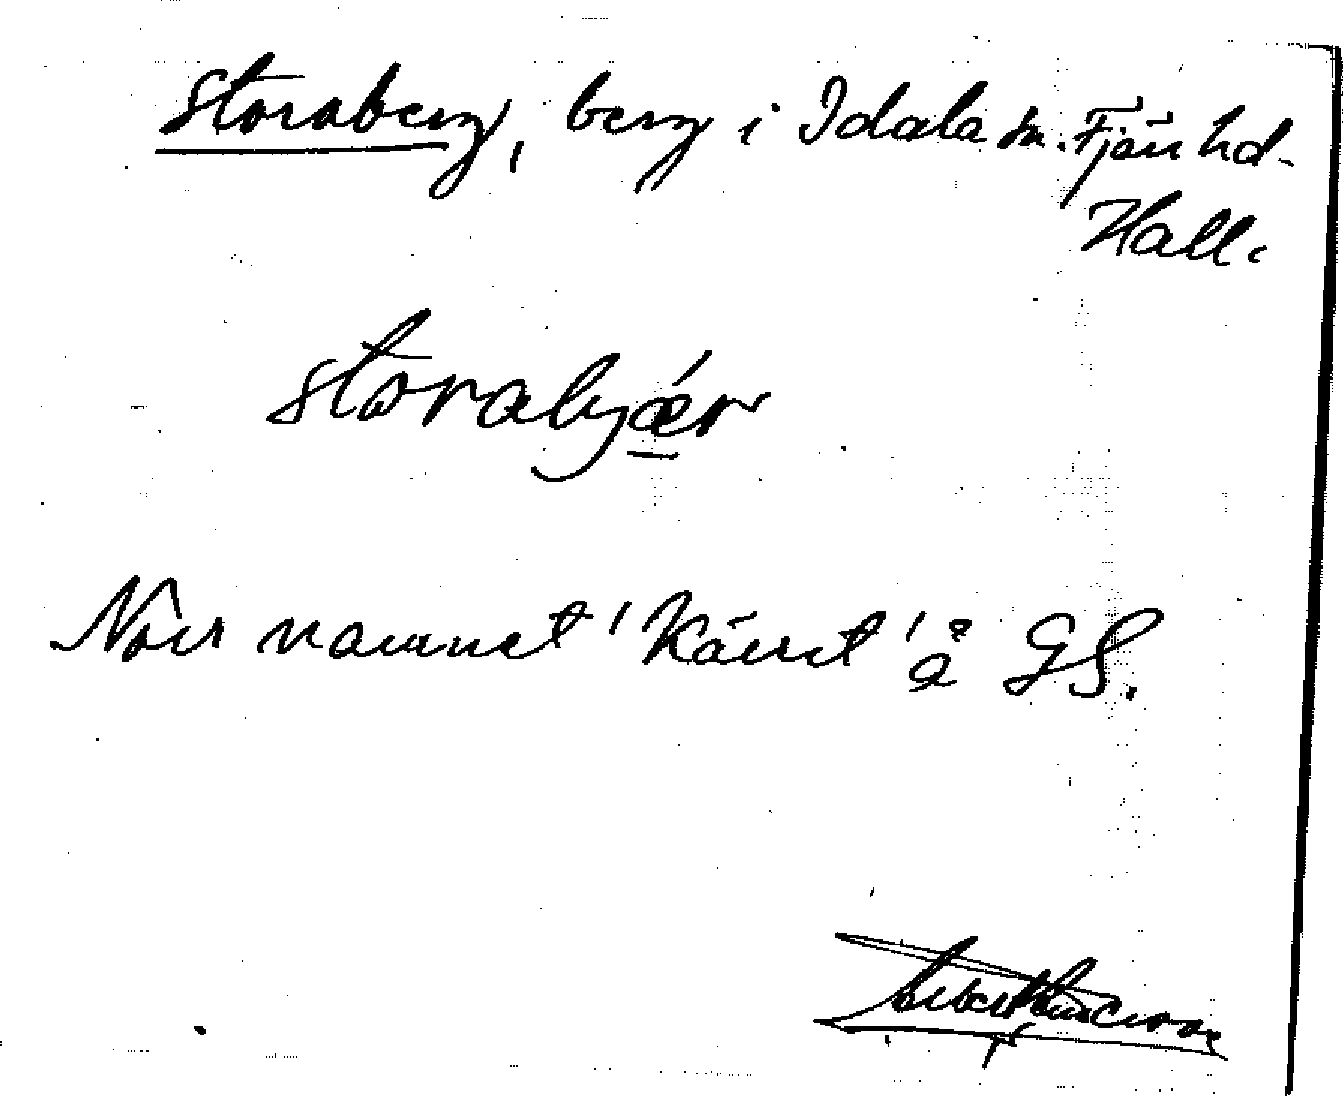 Storaberg, berg i Idala sn. Fjäre hd.
Hall.
storabjær
När namnet 'Kärret' å GS.